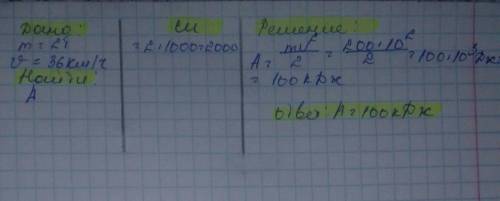 Дано:
m = 2т
v = 36км/ч
Найти:
A
СИ
= 2·1000=2000
Решение:
A = mv²/2 = 200·10²/2 = 100·10³Дж=
= 100кДж
Ответ: A=100кДж